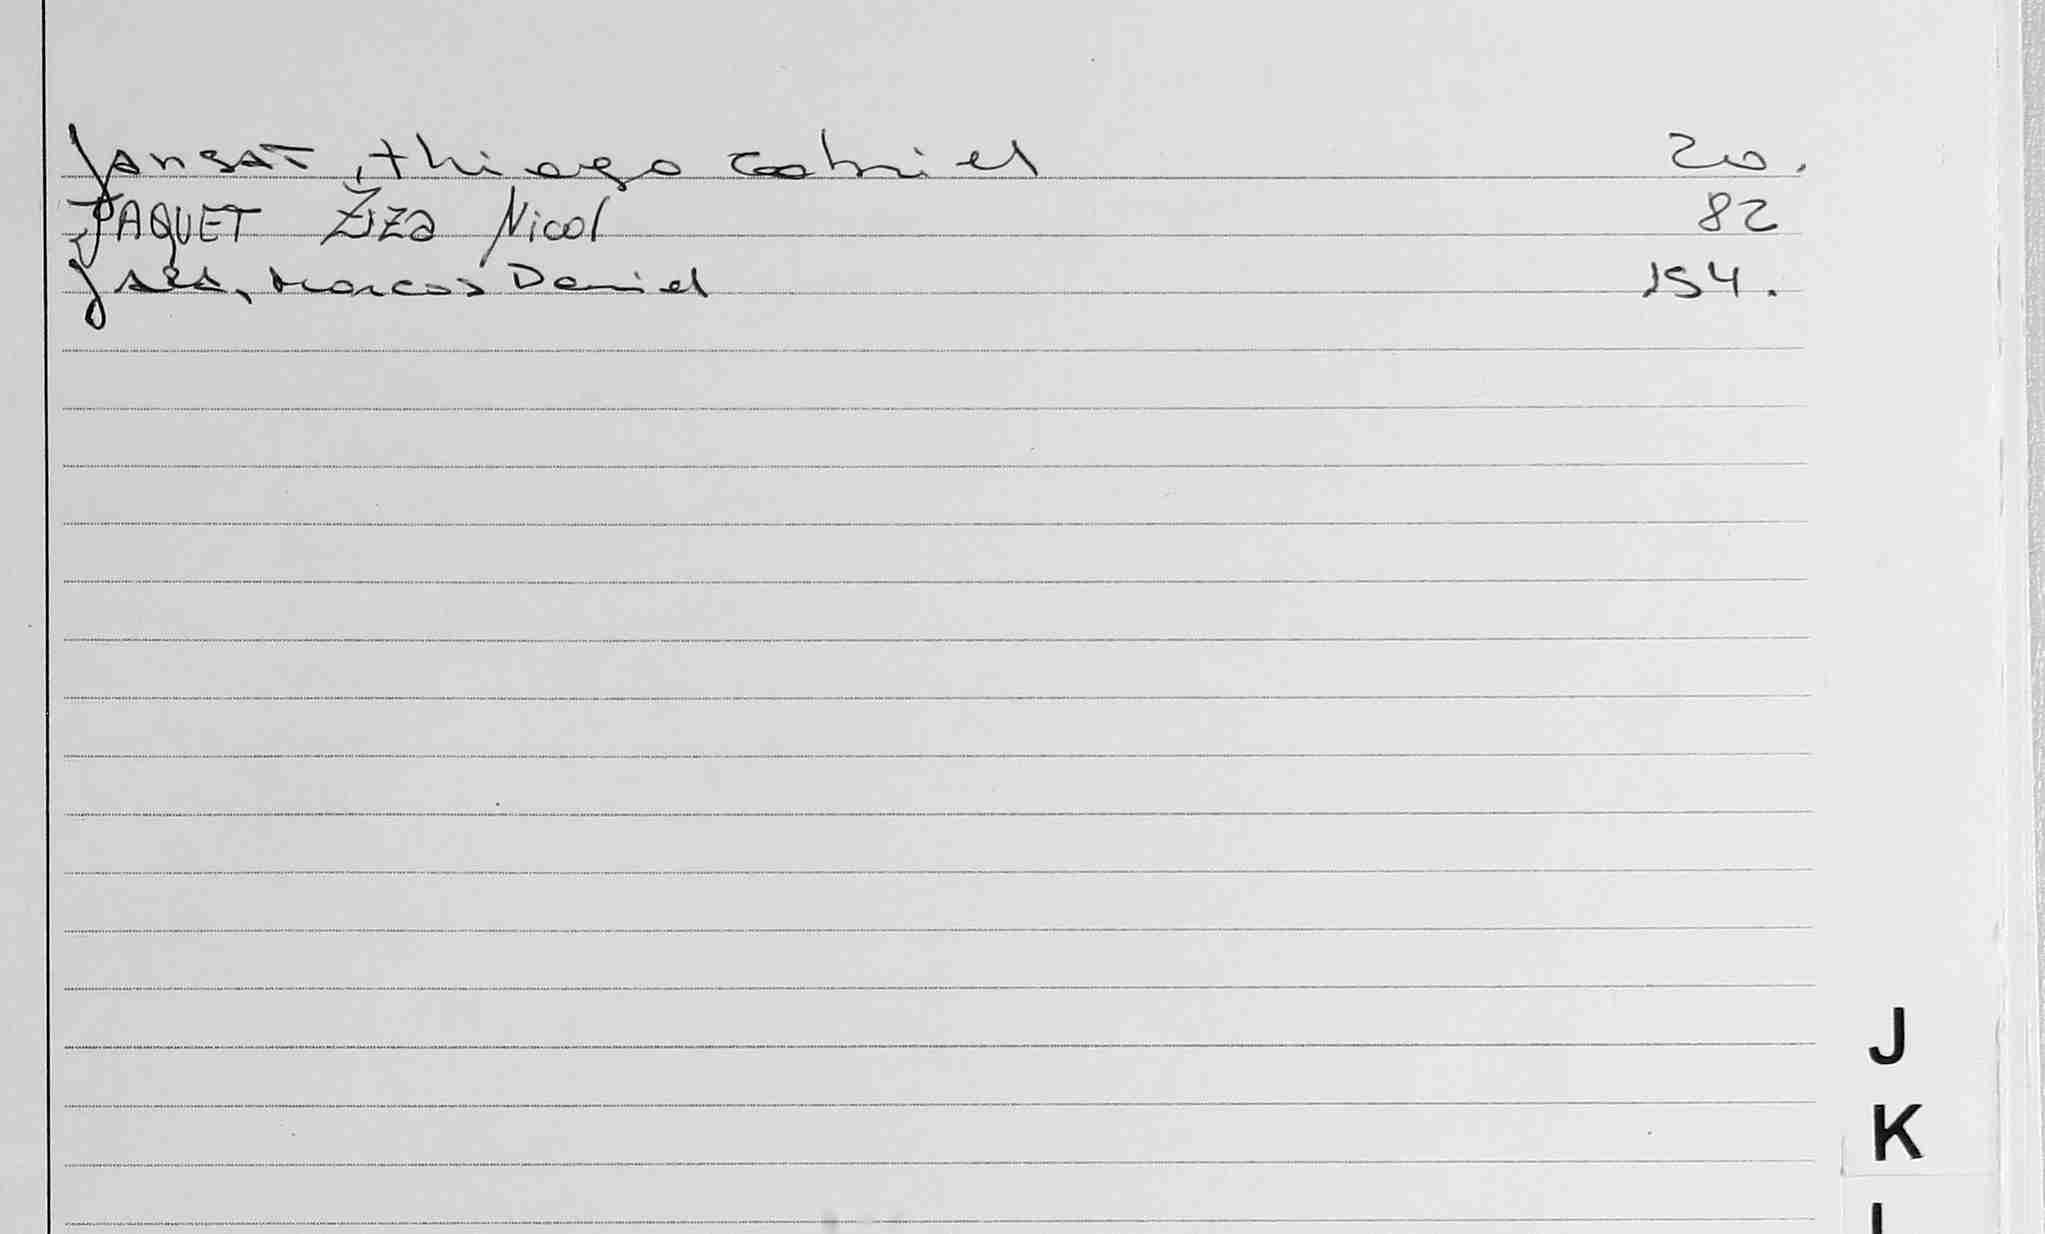 Jansat, Thiago Gabriel 20.
JAQUET Ziza Nicol 82
Jara, Marcos Daniel 154.
J
K
L